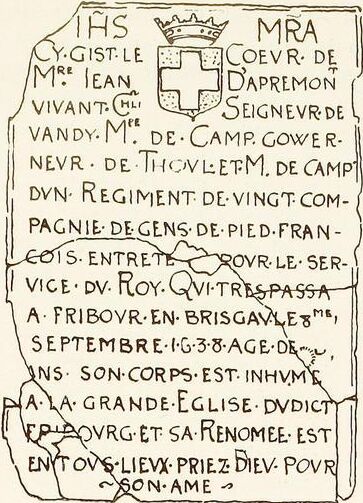 IHS MRA
CY·GIST·LE COEVR·DE
Mre IEAN D'APREMONT
VIVANT·CHLI SEIGNEVR·DE
VANDY·Mre·DE·CAMP·GOWER-
NEVR·DE·THOVL·ET·M·DE·CAMP
DVN·REGIMENT·DE·VINGT·COM-
PAGNIE·DE·GENS·DE·PIED·FRAN-
COIS·ENTRETE POVR·LE·SER-
VICE·DV·ROY·QVI·TRESPASSA
A·FRIBOVR·EN·BRISGAV·LE 8me,
SEPTEMBRE·1·6·3·8·AGE·DE
ANS·SON·CORPS·EST·INHVME
A·LA·GRANDE·EGLISE·DVDICT
FRIBOVRG·ET·SA·RENOMEE·EST
EN·TOVS·LIEVX·PRIEZ·DIEV·POVR
~SON·AME~